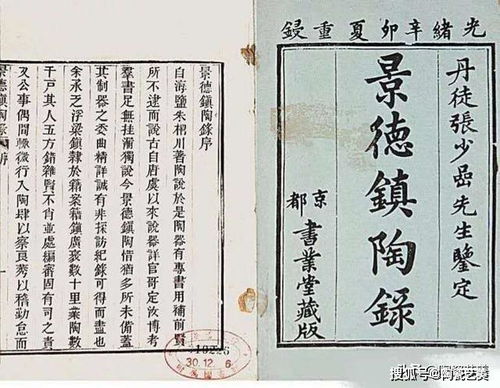 光緒辛卯夏重鋟
丹徒張少喦先生鑒定
景德鎮陶錄
京都
書業堂藏版
景德鎮陶錄序
自海鹽朱桐川著陶說於是陶器有專書用補前賢
所不逮而說古自唐虞以來說器詳官哥定汝博考
羣書足無挂漏獨說今景德鎮陶惜猶多所未備蓋
其制器之委曲精詳誠有非採訪紀錄可得而盡也
余承乏浮梁鎮隸於籍案籍鎮廣袤數十里業陶數
千戸其人五方錯雜賢不肖並處編審固有司之責
又公事偶閒輙微行入陶肆以察良莠以稽勤怠而
景德鎮陶錄
序
10226
30.12.6
搜狐号@陶瓷艺美